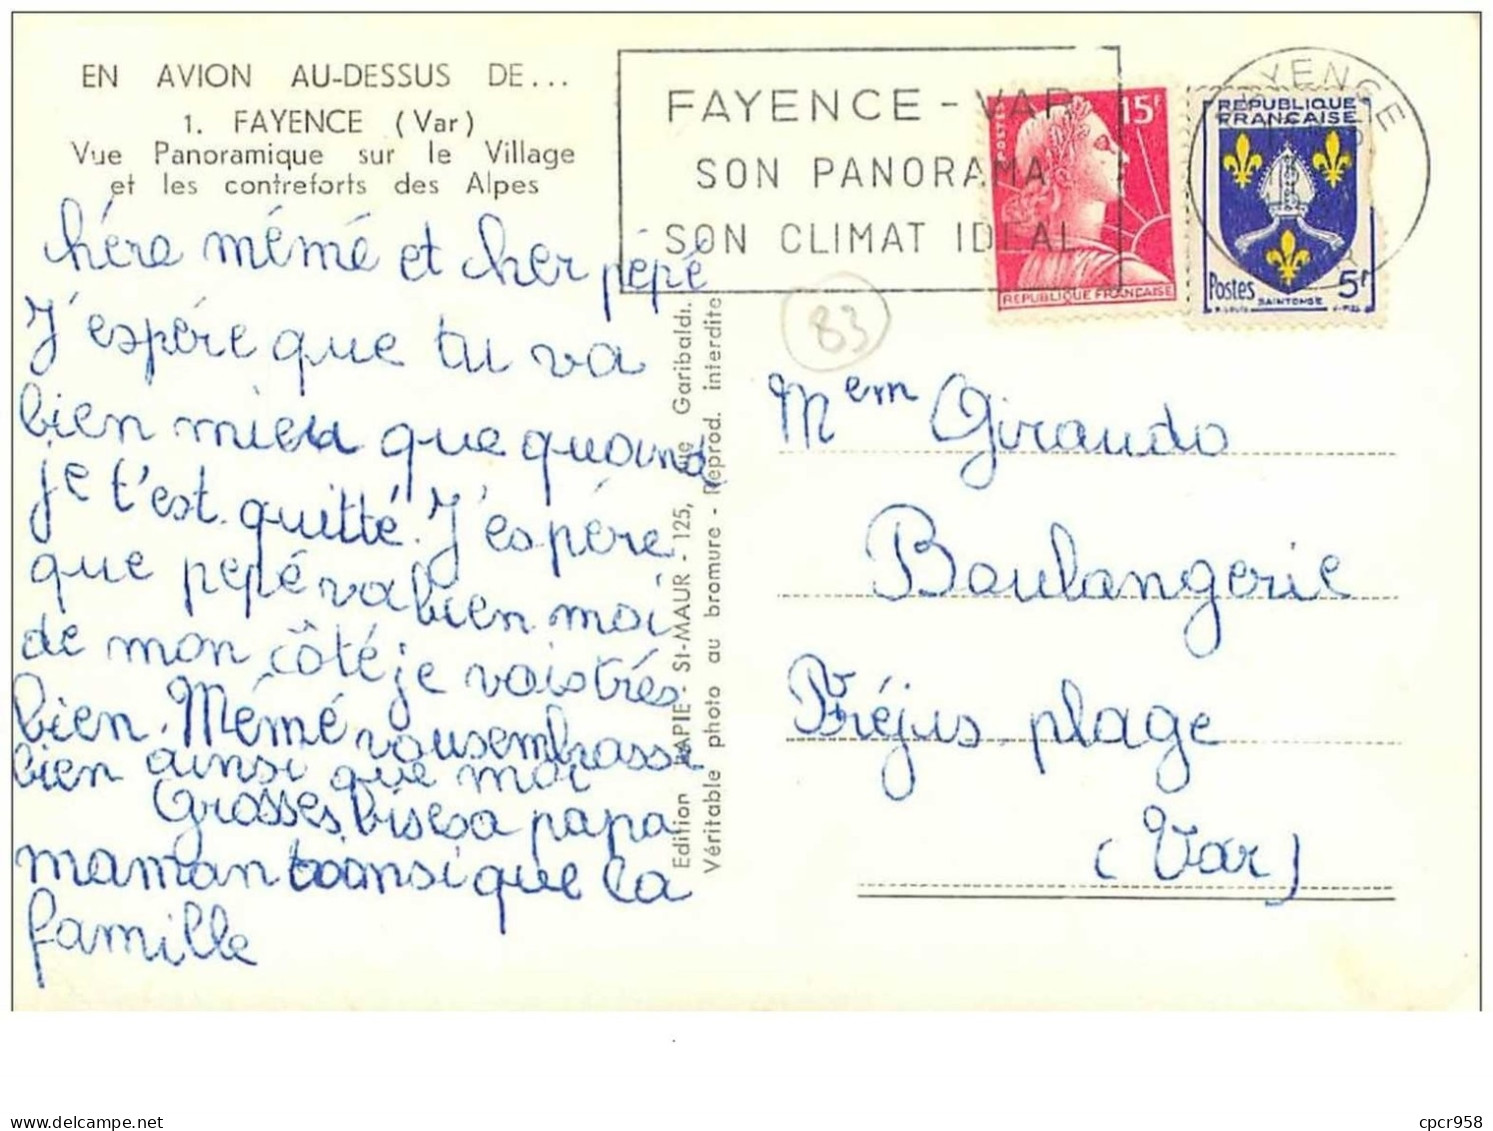 EN AVION AU-DESSUS DE...
1. FAYENCE (Var)
Vue Panoramique sur le Village
et les contreforts des Alpes
hére mémé et cher pépé
J'espére que tu va
bien mieu que quand
je t'est quitté. J'espére
que pepé va bien moi
de mon côté je vais trés
bien. Mémé vousembrasse
bien ainsi que moi
Grosses bises a papa
maman ainsi que la
famille
Edition LAPIE - St-MAUR - 125, Rue Garibaldi.
Véritable photo au bromure - Reprod. interdite
FAYENCE - VAR
SON PANORAMA
SON CLIMAT IDEAL
POSTES
15F
REPUBLIQUE FRANÇAISE
REPUBLIQUE
FRANÇAISE
Postes
5F
SAINTONGE
FAYENCE
83
Mem Giraudo
Boulangerie
Fréjus plage
(Var)
cpcr958